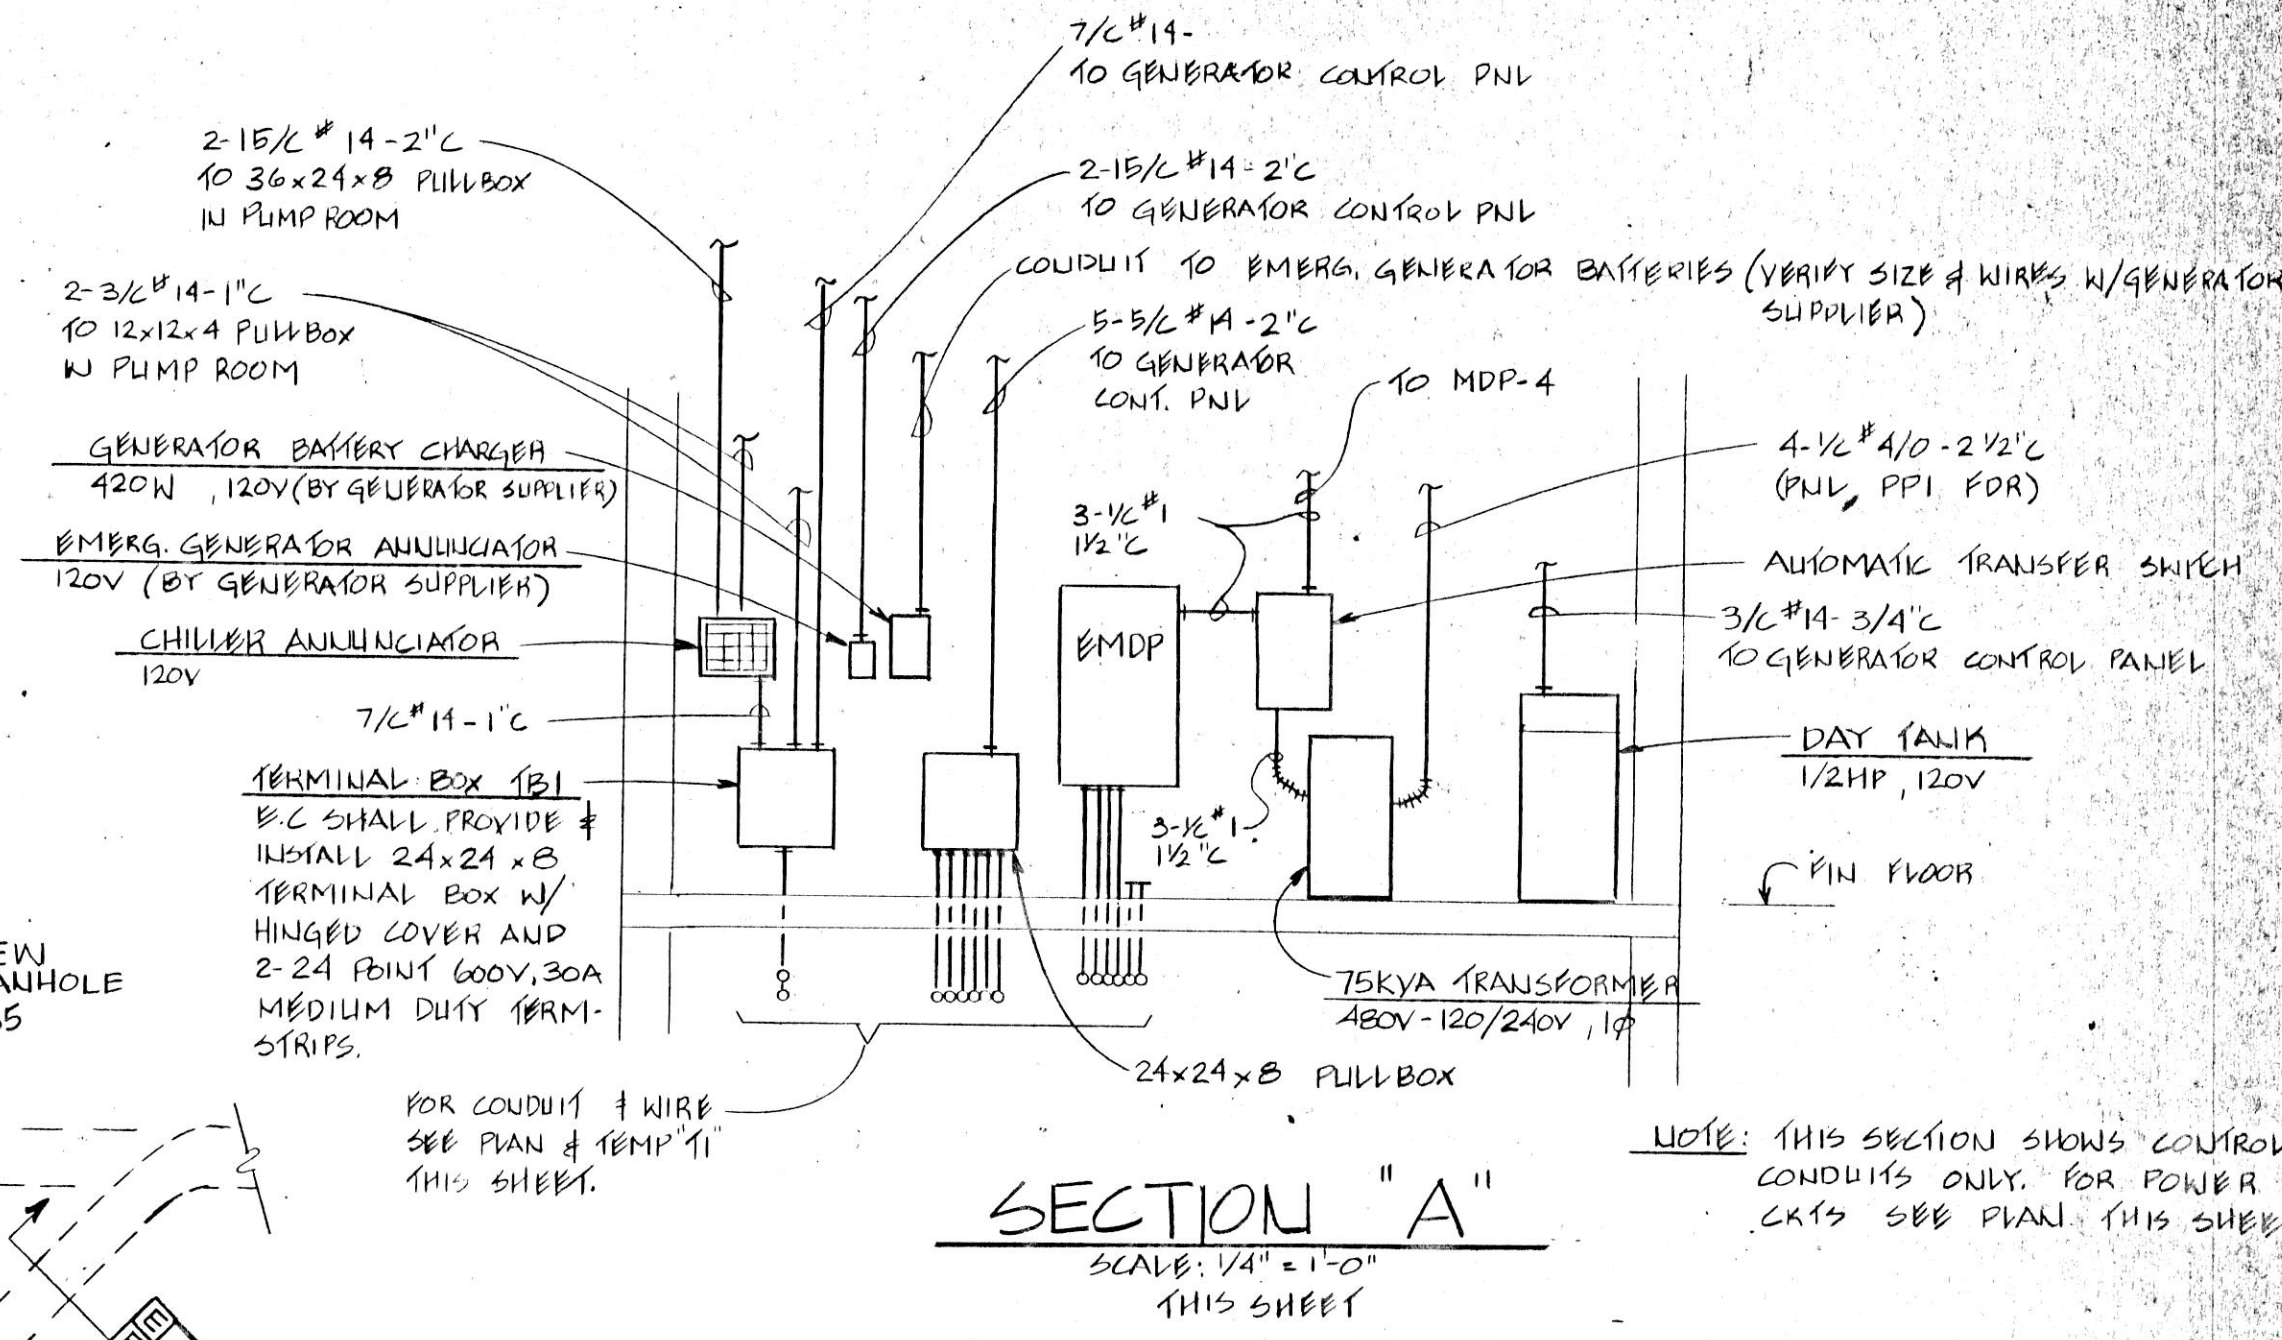 7/C #14-
TO GENERATOR CONTROL PNL
2-15/C #14-2"C
TO 36x24x8 PULLBOX
IN PUMP ROOM
2-15/C #14-2"C
TO GENERATOR CONTROL PNL
CONDUIT TO EMERG. GENERATOR BATTERIES (VERIFY SIZE & WIRES W/GENERATOR
SUPPLIER)
2-3/C #14-1"C
TO 12x12x4 PULLBOX
IN PUMP ROOM
5-5/C #14-2"C
TO GENERATOR
CONT. PNL
TO MDP-4
GENERATOR BATTERY CHARGER
420W , 120V (BY GENERATOR SUPPLIER)
4-1/C #4/0-2 1/2"C
(PNL, PP1 FDR)
3-1/C #1
1 1/2"C
EMERG. GENERATOR ANNUNCIATOR
120V (BY GENERATOR SUPPLIER)
AUTOMATIC TRANSFER SWITCH
3/C #14-3/4"C
TO GENERATOR CONTROL PANEL
CHILLER ANNUNCIATOR
120V
EMDP
7/C #14-1"C
DAY TANK
1/2HP, 120V
TERMINAL BOX TB1
E.C SHALL PROVIDE &
INSTALL 24x24x8
TERMINAL BOX W/
HINGED COVER AND
2-24 POINT 600V, 30A
MEDIUM DUTY TERM-
STRIPS.
3-1/C #1
1 1/2"C
FIN FLOOR
EW
ANHOLE
5
75KVA TRANSFORMER
480V-120/240V, 1φ
24x24x8 PULLBOX
FOR CONDUIT & WIRE
SEE PLAN & TEMP "T1"
THIS SHEET.
NOTE: THIS SECTION SHOWS CONTROL
CONDUITS ONLY. FOR POWER
CKTS SEE PLAN THIS SHEE
SECTION "A"
SCALE: 1/4" = 1'-0"
THIS SHEET
E